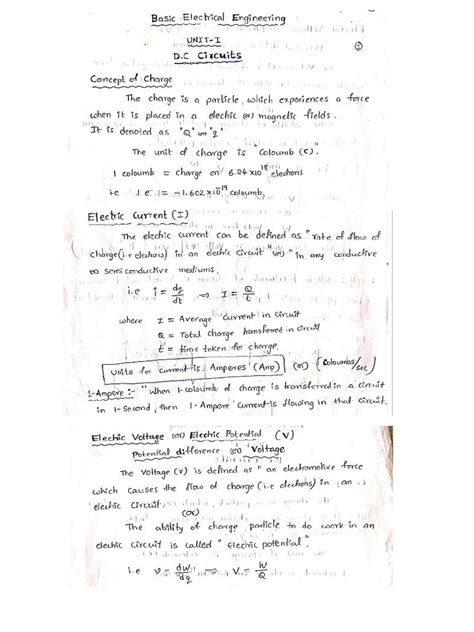 Basic Electrical Engineering
UNIT-I
①
D.C Circuits
Concept of Charge
The charge is a particle, which experiences a force
when it is placed in a electric (or) magnetic fields.
It is denoted as 'Q' or 'q'
The unit of charge is "Coloumb (C)."
1 coloumb = charge on 6.24 x10^18 electrons
i.e 1.e = -1.602x10^-19 coloumb
Electric Current (I)
The electric current can be defined as "rate of flow of
charge (i.e electrons) in an electric circuit (or) "in any conductive
(or) semi conductive mediums.
i.e i = dq/dt ⇒ I = Q/t
where I = Average current in circuit
Q = Total charge transferred in circuit
t = time taken for charge.
Units for current is 'Amperes' (Amp) (or) (Coloumbs/sec)
1-Ampere :- "When 1-coloumb of charge is transferred in a circuit
in 1-Second, then 1-Ampere current is flowing in that circuit.
Electric Voltage (or) Electric Potential (V)
Potential difference (or) Voltage
The Voltage (V) is defined as "an electromotive force
which causes the flow of charge (i.e electrons) in an
electric circuit
(or)
The ability of charge particle to do work in an
electric circuit is called "Electric potential"
i.e v = dw/dq ⇒ V = W/Q